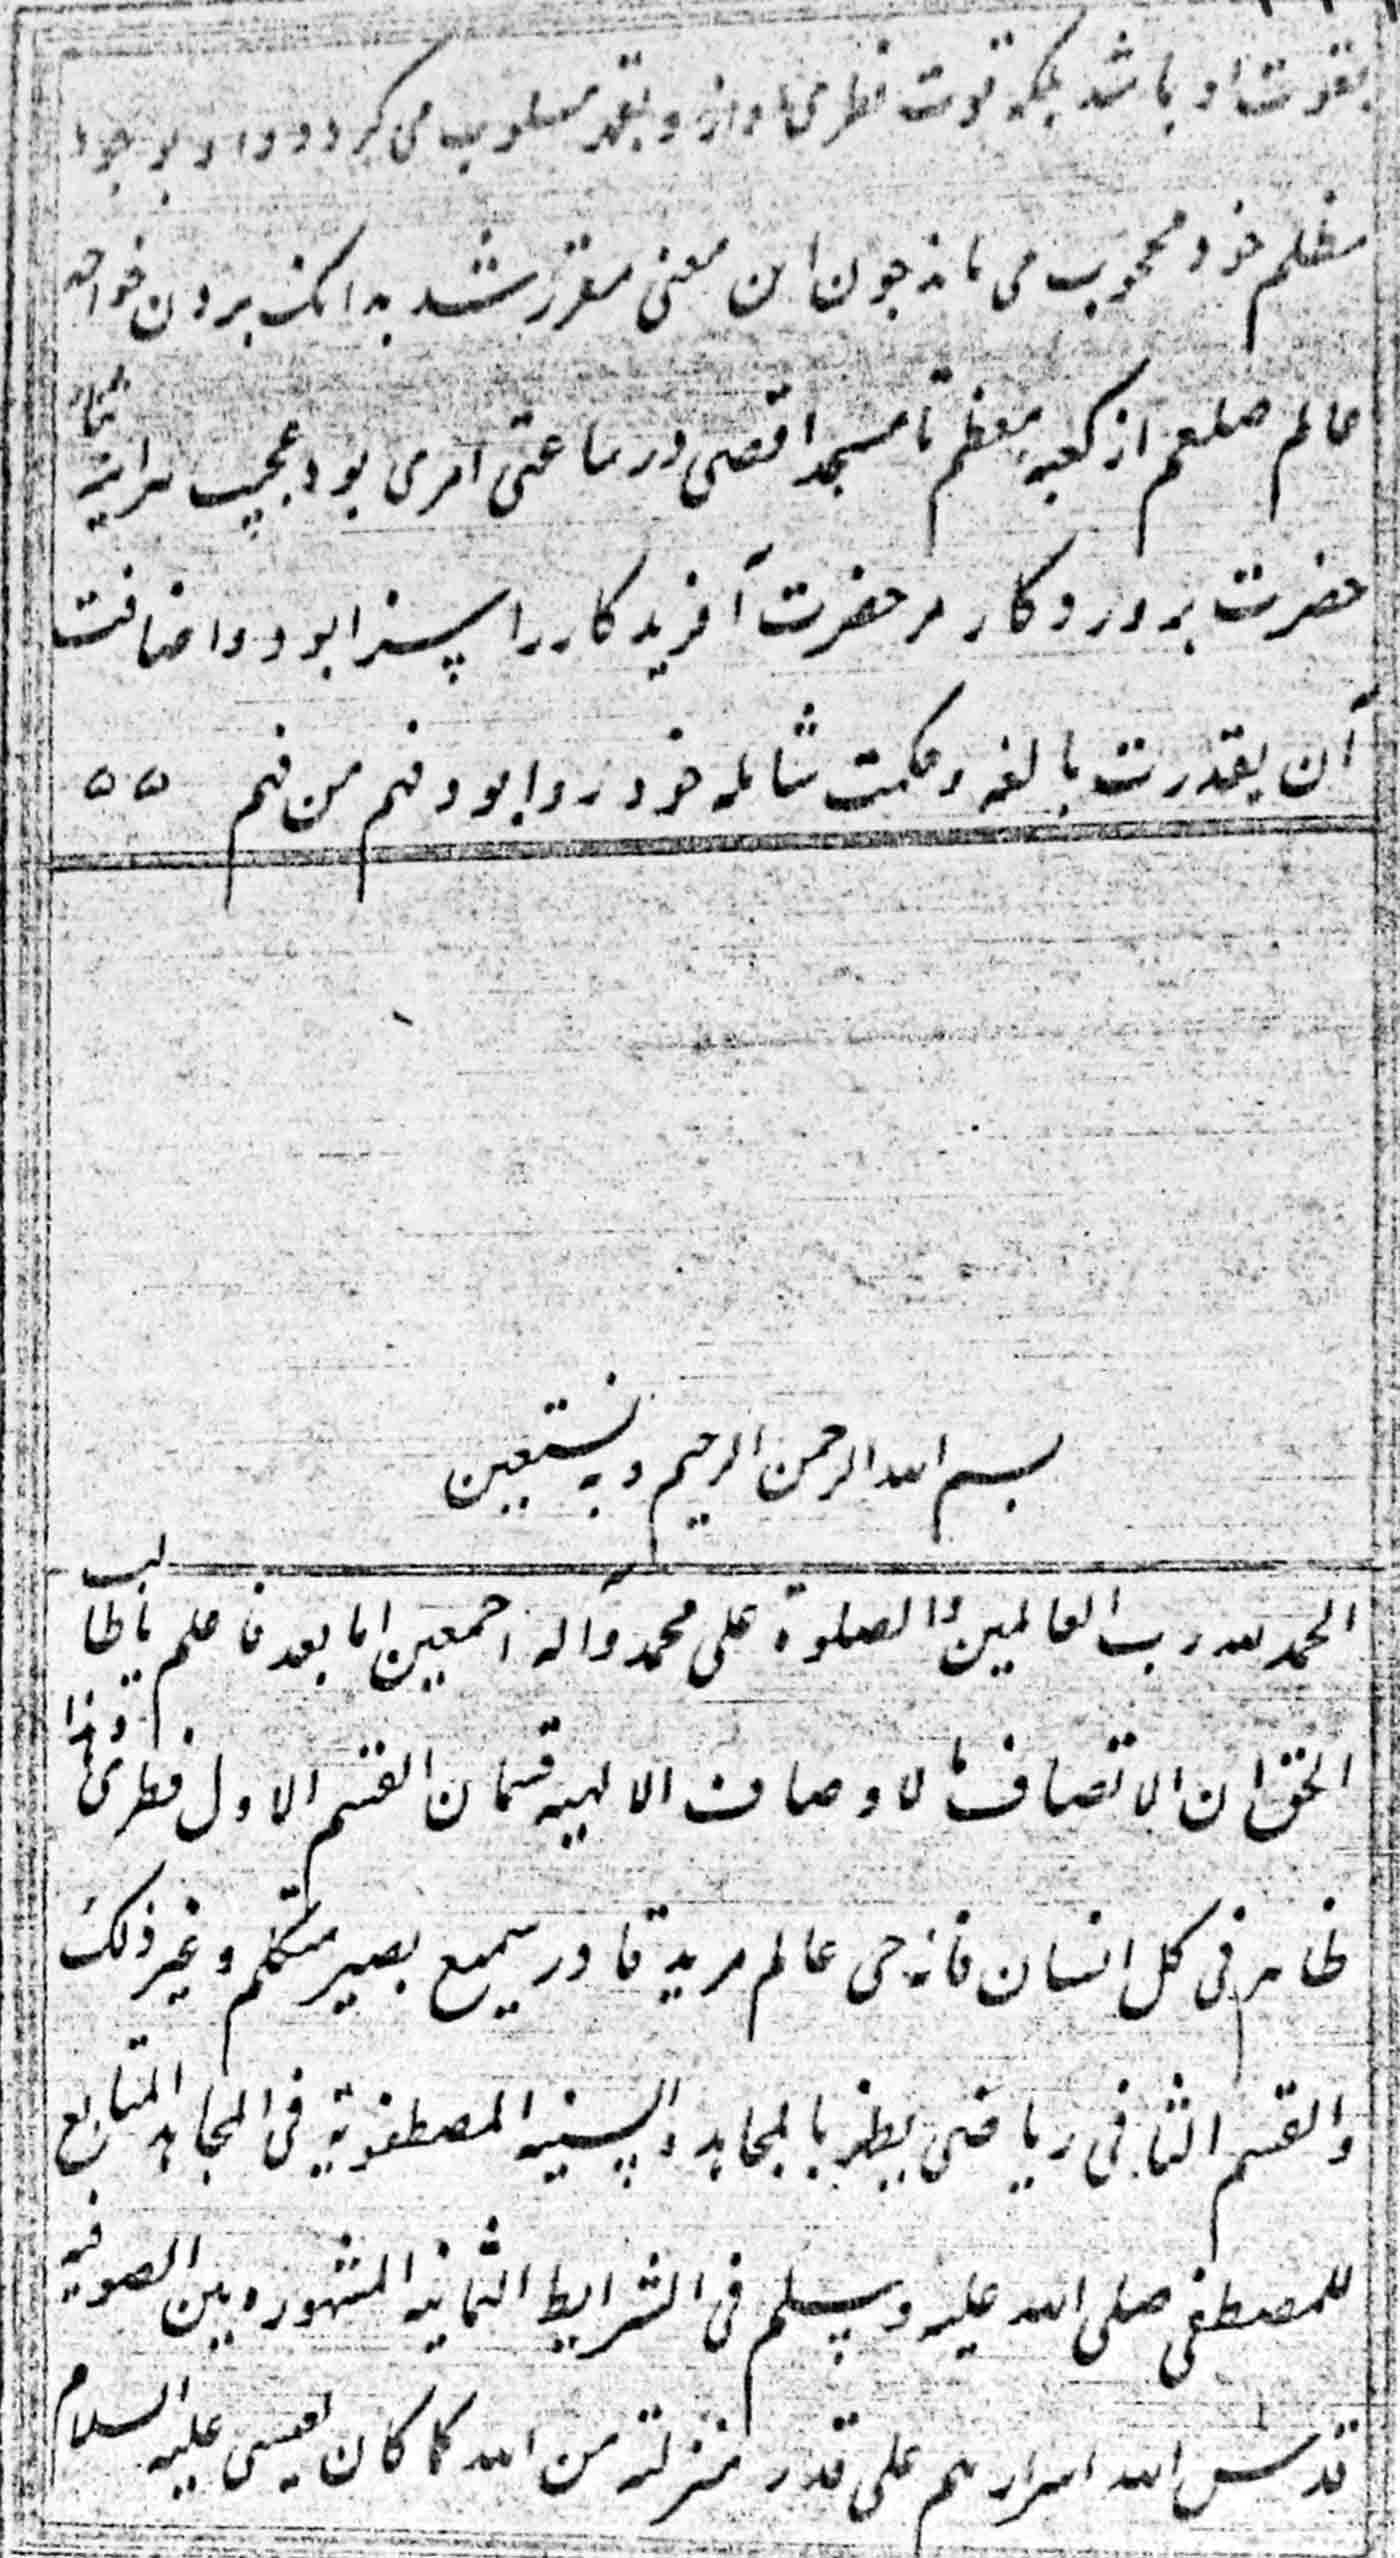 بقوت او باشد بلکه قوت نظر می‌ و بقهر مسلوب می کردد و او بوجود
مظلم خود محجوب می ماند جون این معنی مقرر شد بدانک بردن خواجه
عالم صلعم از کعبه معظم تا مسجد اقصی در ساعتی امری بود عجیب
حضرت بروردکار مر حضرت آفریدکار را سزا بود و اضافت
آن بقدرت بالغه و حکمت شامله خود روا بود فهم من فهم ه ه
بسم الله الرحمن الرحیم وبه نستعین
الحمد لله رب العالمین والصلوة علی محمد وآله اجمعین اما بعد فاعلم یا طالب
الحق ان الاتصاف بالاوصاف الالهیه قسمان القسم الاول فطری وهذا
ظاهر فی کل انسان فانه حی عالم مرید قادر سمیع بصیر متکلم وغیر ذلک
والقسم الثانی ریاضی یظهر بالمجاهده السنیه المصطفویة فی المجاهد المتابع
للمصطفی صلی الله علیه وسلم فی الشرایط الثمانیه المشهوره بین الصوفیه
قدس الله اسرارهم علی قدر منزلته من الله کما کان لعیسی علیه السلام